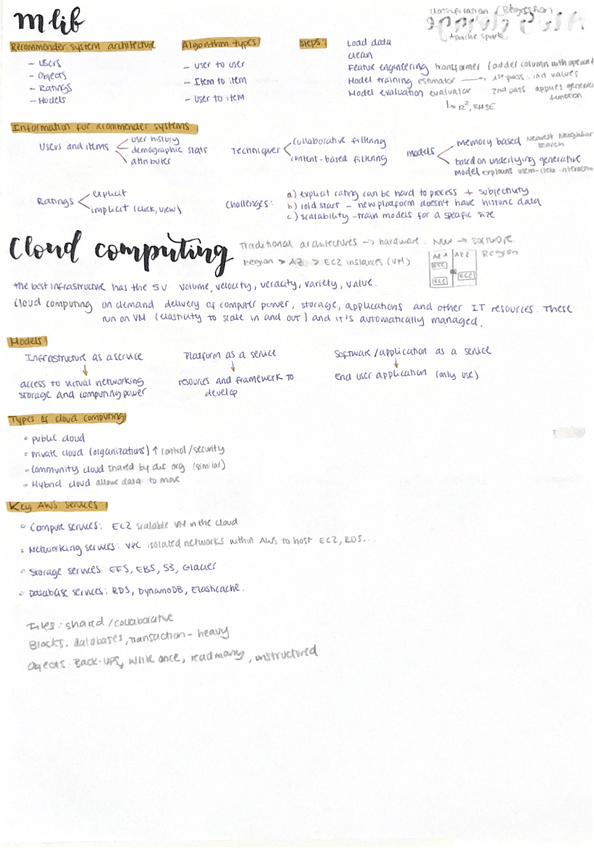 Mlib
classification / Regression
Apache Spark
Recommender system architecture
- Users
- Objects
- Ratings
- Models
Algorithm types
- user to user
- Item to item
- User to item
Steps
Load data
clean
Feature engineering transformer (adder column with
Model training estimator → 1st pass: ind values
Model evaluation evaluator 2nd pass applies
function
↳ R², RMSE
Information for recommender systems
Users and items
user history
demographic stats
attributes
Techniques
collaborative filtering
content-based filtering
models
memory based Nearest Neighbor
search
based on underlying generative
model explains
Ratings
explicit
implicit (click, view)
Challenges:
a) explicit rating can be hard to process + subjectivity
b) cold start - new platform doesn't have historic data
c) scalability - train models for a specific size
Cloud computing
Traditional architectures → hardware. New → software.
Region > AZ > EC2 instances (VM)
AZ 1 AZ 2 Region
EC2
EC2
the best infrastructure has the 5V volume, velocity, veracity, variety, value.
Cloud computing on demand delivery of computer power, storage, applications and other IT resources. These
run on VM (elasticity to scale in and out) and it's automatically managed.
Models
Infrastructure as a service
access to virtual networking
storage and computing power
Platform as a service
resources and framework to
develop
Software/application as a service
end user application (only use)
Types of cloud computing
◦ public cloud
◦ Private cloud (organizations) ↑ control/security
◦ Community cloud shared by dif org (similar)
◦ Hybrid cloud allow data to move
Key AWS services
◦ Compute services: EC2 scalable VM in the cloud
◦ Networking services: VPC isolated networks within AWS to host EC2, RDS...
◦ Storage services EFS, EBS, S3, Glacier
◦ Database services: RDS, DynamoDB, Elasticache.
Files: shared/collaborative
Blocks: databases, transaction-heavy
Objects: Back-ups, write once, read many, unstructured